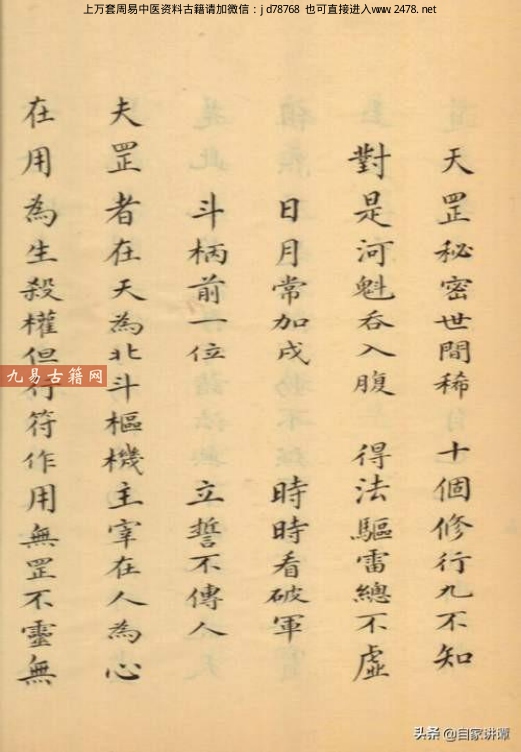 上万套周易中医资料古籍请加微信：jd78768 也可直接进入www.2478.net
天罡秘密世間稀 十個修行九不知
對是河魁吞入腹 得法驅雷總不虛
日月常加戌 時時看破軍
斗柄前一位 立誓不傳人
夫罡者在天為北斗樞機主宰在人為心
在用為生殺權但行符作用無罡不靈無
九易古籍网
头条 @自家讲谭